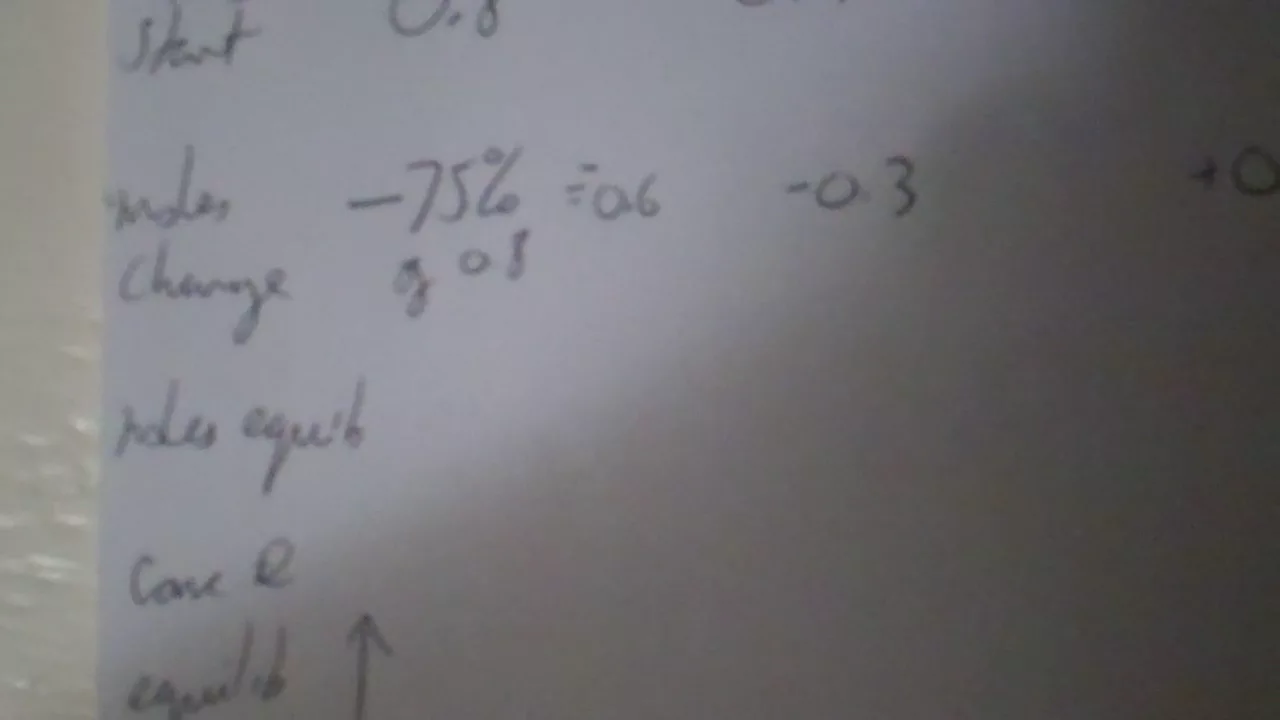 Start 0.8
moles -75% = -0.6 -0.3 +0
change of 0.8
moles equib
Conc @
equilib ↑